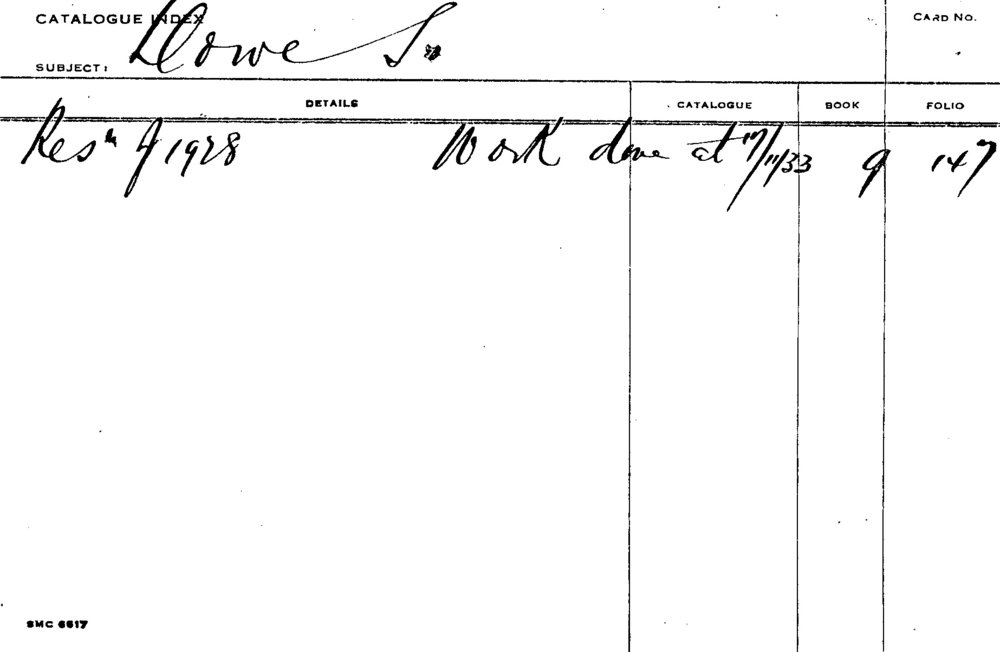 CATALOGUE INDEX
CARD No.
SUBJECT: Dowe St
DETAILS CATALOGUE BOOK FOLIO
Resn of 1928 Work done at 17/11/33 9 147
SMC 6617